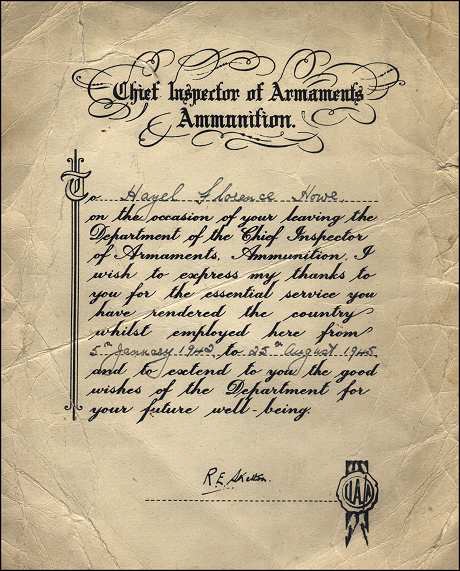 Chief Inspector of Armaments
Ammunition.
To Hazel Florence Howe
on the occasion of your leaving the
Department of the Chief Inspector
of Armaments, Ammunition, I
wish to express my thanks to
you for the essential service you
have rendered the country
whilst employed here from
5th January 1942 to 25th August 1945
and to extend to you the good
wishes of the Department for
your future well-being.
R.E. Skelton.